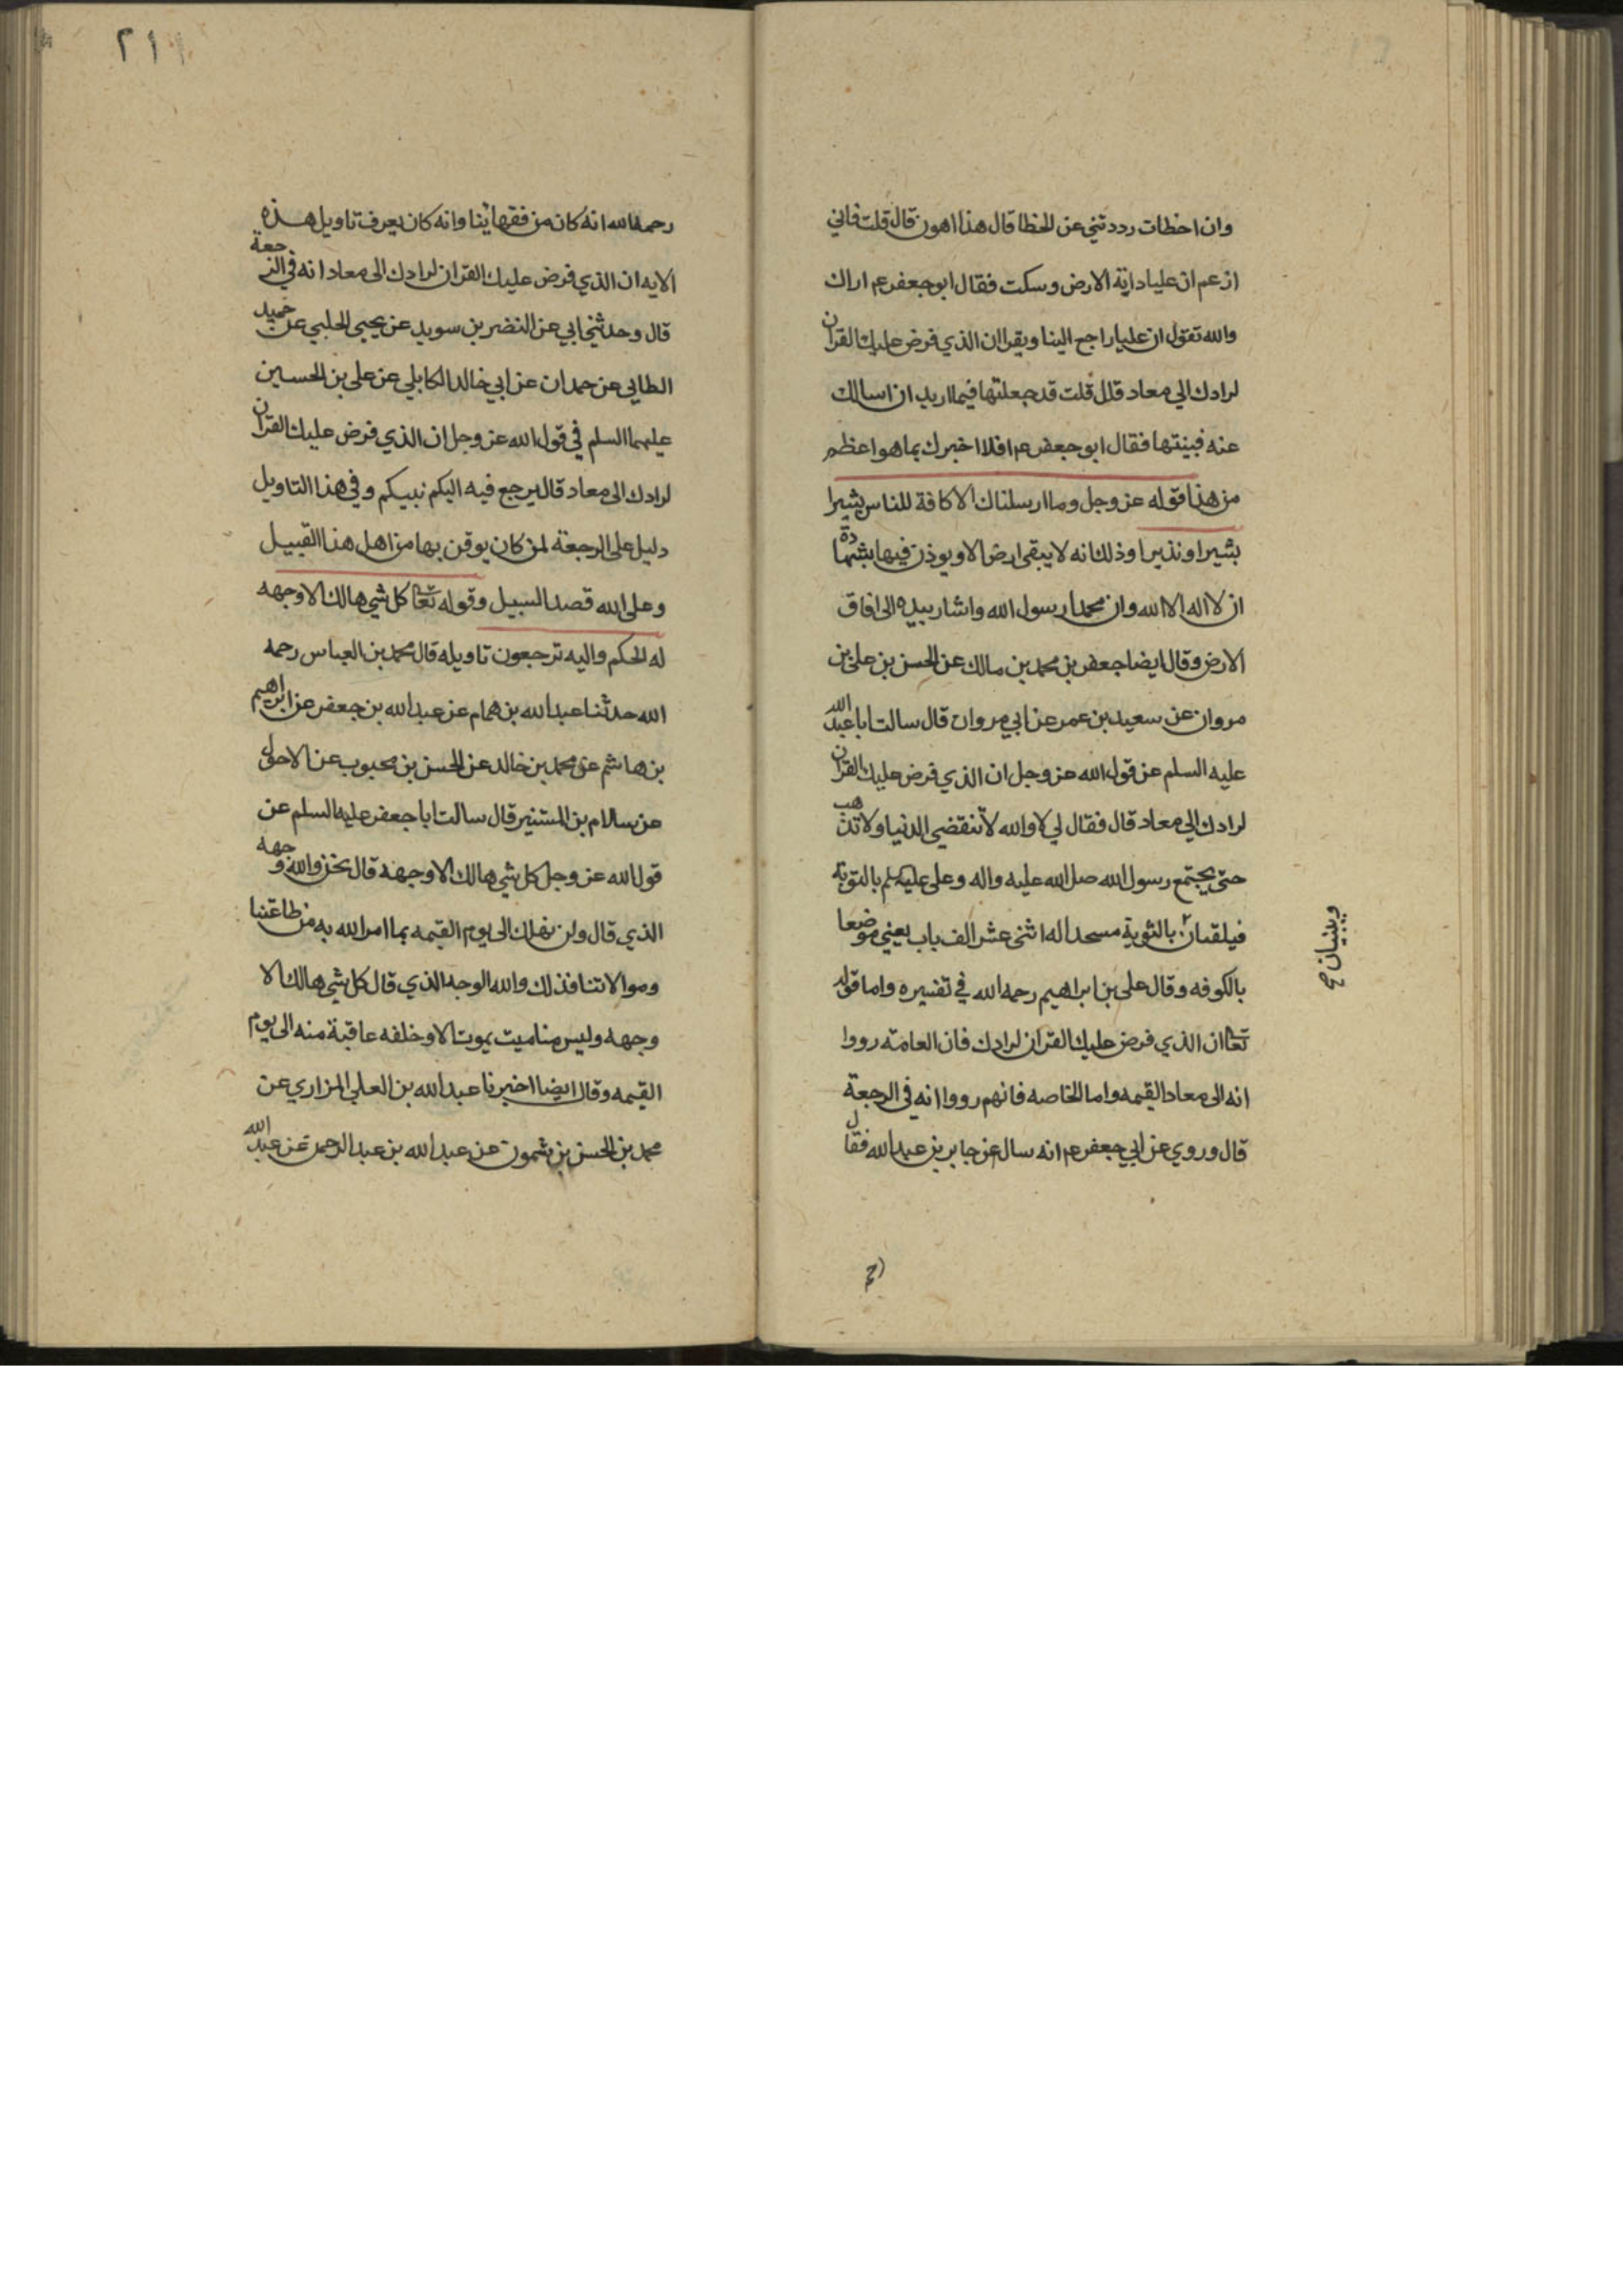 وان اخطات رددتني عن الخطا قال هذا اهون قال قلت فاني
ازعم ان عليا دابة الارض وسكت فقال ابو جعفر عم اراك
والله تقول ان عليا راجع الينا ويقرا ان الذي فرض عليك القران
لرادك الي معاد قال قلت قد جعلتها فيما اريد ان اسالك
عنه فبينتها فقال ابو جعفر عم افلا اخبرك بما هو اعظم
من هذا قوله عز وجل وما ارسلناك الا كافة للناس بشيرا
بشيرا ونذيرا وذلك انه لا يبقى ارض الا ويوذن فيها بشهادة
ان لا اله الا الله وان محمدا رسول الله واشار بيده الى افاق
الارض وقال ايضا جعفر بن محمد بن مالك عن الحسن بن علي بن
مروان عن سعيد بن عمر عن ابي مروان قال سالت ابا عبد الله
عليه السلم عن قول الله عز وجل ان الذي فرض عليك القران
لرادك الي معاد قال فقال لي لا والله لا تنقضي الدنيا ولا تذهب
حتى يجتمع رسول الله صل الله عليه واله وعلى عليهم بالثوية
فيلقيان بالثوية مسجدا له اثنى عشر الف باب يعني موضعا
ويبنيان صح
بالكوفه وقال علي بن ابراهيم رحمه الله في تفسيره واما قوله
تعا ان الذي فرض عليك القران لرادك فان العامة رووا
انه الى معاد القيمه واما الخاصه فانهم رووا انه في الرجعة
قال وروي عن ابي جعفر عم انه سال عن جابر بن عبد الله فقال
٢١١
رحمه الله انه كان من فقهائنا وانه كان يعرف تاويل هذه
الايه ان الذي فرض عليك القران لرادك الى معاد انه في الرجعة
قال وحدثني ابي عن النضر بن سويد عن يحيى الحلبي عن حميد
الطايي عن حمدان عن ابي خالد الكابلي عن علي بن الحسين
عليهما السلم في قول الله عز وجل ان الذي فرض عليك القران
لرادك الى معاد قال يرجع فيه اليكم نبيكم وفي هذا التاويل
دليل على الرجعة لمن كان يوقن بها من اهل هذا القبيل
وعلى الله قصد السبيل وقوله تعا كل شي هالك الا وجهه
له الحكم واليه ترجعون تاويله قال محمد بن العباس رحمه
الله حدثنا عبد الله بن همام عن عبد الله بن جعفر عن ابرهيم
بن هاشم عن محمد بن خالد عن الحسن بن محبوب عن الاحول
عن سلام بن المستنير قال سالت ابا جعفر عليه السلم عن
قول الله عز وجل كل شي هالك الا وجهه قال نحن والله وجهه
الذي قال ولن نهلك الى يوم القيمه بما امر الله به من طاعتنا
وموالاتنا فذلك والله الوجه الذي قال كل شي هالك الا
وجهه وليس منا ميت يموت الا وخلفه عاقبة منه الى يوم
القيمه وقال ايضا اخبرنا عبد الله بن العلي المزاري عن
محمد بن الحسن بن شمون عن عبد الله بن عبد الرحمن عن عبد الله